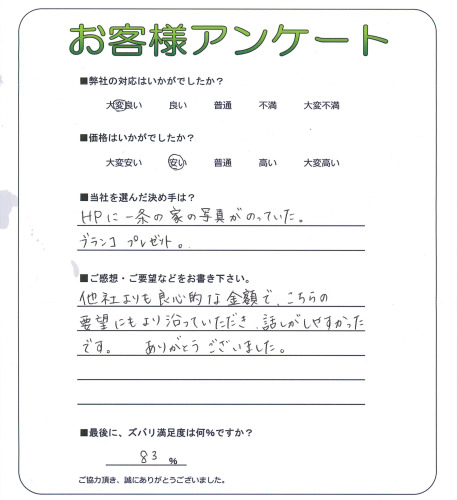 お客様アンケート
■弊社の対応はいかがでしたか？
大変良い 良い 普通 不満 大変不満
■価格はいかがでしたか？
大変安い 安い 普通 高い 大変高い
■当社を選んだ決め手は？
HPに一条の家の写真がのっていた。
ブランコ プレゼント。
■ご感想・ご要望などをお書き下さい。
他社よりも良心的な金額で、こちらの
要望にもより沿っていただき、話しがしやすかった
です。 ありがとうございました。
■最後に、ズバリ満足度は何%ですか？
83 %
ご協力頂き、誠にありがとうございました。